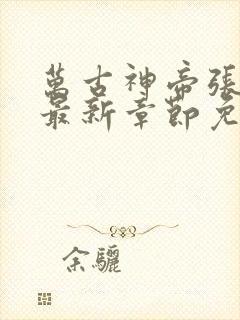 萬古神帝張
最新章節免
余驪